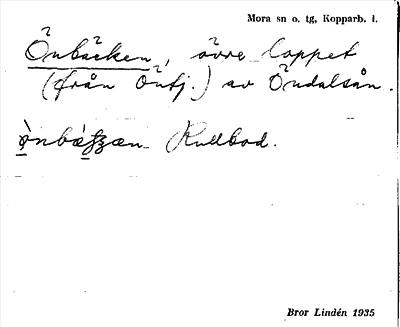 Mora sn o. tg, Kopparb. l.
Önbäcken, övre loppet
(från Öntj.) av Öndalsån.
Rullbod.
Bror Lindén 1935